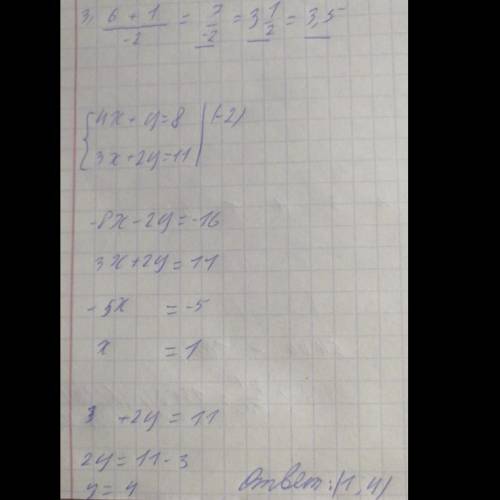 3, 6 + 1 / -2 = 7 / -2 = 3 1/2 = 3,5
{ 4x + y = 8 | (-2)
3x + 2y = 11
-8x - 2y = -16
3x + 2y = 11
-5x = -5
x = 1
3 + 2y = 11
2y = 11 - 3
y = 4
Ответ: (1, 4)